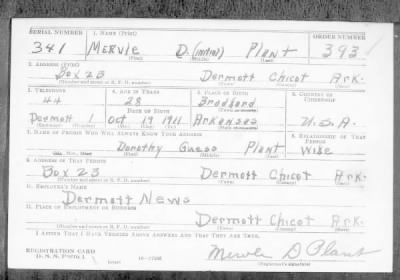 SERIAL NUMBER 1. NAME (Print) ORDER NUMBER
341 MERVLE D. (initial) Plant 393
(First) (Middle) (Last)
2. ADDRESS (Print)
Box 23 Dermott Chicot Ark.
(Number and street or R. F. D. number) (Town) (County) (State)
3. TELEPHONE 4. AGE IN YEARS 5. PLACE OF BIRTH 6. COUNTRY OF CITIZENSHIP
44 28 Bradford
DATE OF BIRTH (Town or county)
Dermott 1 Oct 19 1911 Arkansas U.S.A.
(Exchange) (Number) (Mo.) (Day) (Yr.) (State or country)
7. NAME OF PERSON WHO WILL ALWAYS KNOW YOUR ADDRESS 8. RELATIONSHIP OF THAT PERSON
Dorothy Guess Plant Wife
(Mr., Mrs., Miss) (First) (Middle) (Last)
9. ADDRESS OF THAT PERSON
Box 23 Dermott Chicot Ark.
(Number and street or R. F. D. number) (Town) (County) (State)
10. EMPLOYER'S NAME
Dermott News
11. PLACE OF EMPLOYMENT OR BUSINESS
Dermott Chicot Ark.
(Number and street or R. F. D. number) (Town) (County) (State)
I AFFIRM THAT I HAVE VERIFIED ABOVE ANSWERS AND THAT THEY ARE TRUE.
REGISTRATION CARD
D. S. S. Form 1 (over) 16-17105 Mervle D Plant
(Registrant's signature)